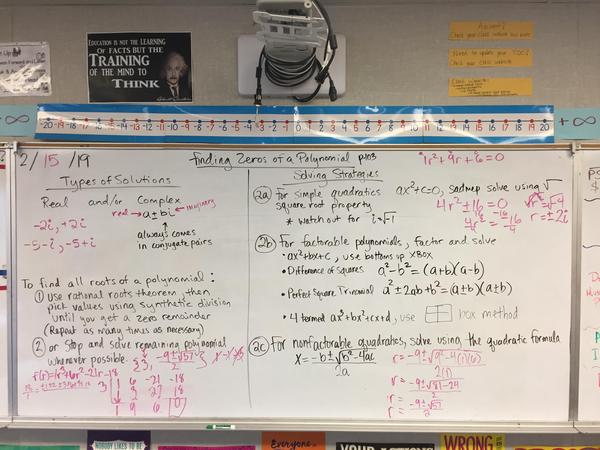 EDUCATION IS NOT THE LEARNING
OF FACTS BUT THE
TRAINING
OF THE MIND TO
THINK
Answers?
Check your class website
Need to update your TOC?
Check your class website
-∞
-20 -19 -18 -17 -16 -15 -14 -13 -12 -11 -10 -9 -8 -7 -6 -5 -4 -3 -2 -1 0 1 2 3 4 5 6 7 8 9 10 11 12 13 14 15 16 17 18 19 20
+∞
2/15/19
Finding Zeros of a Polynomial p103
1r²+9r+6=0
Types of Solutions
Real and/or Complex
real → a±bi ← imaginary
-2i, +2i
-5-i, -5+i
always comes
in conjugate pairs
To find all roots of a polynomial:
① Use rational roots theorem, then
pick values using synthetic division
until you get a zero remainder
(Repeat as many times as necessary)
② or Stop and solve remaining polynomial
whenever possible.
{3, (-9±√57)/2}
f(r)=1r³+6r²-21r-18
3
1 6 -21 -18
3 27 18
1 9 6 0
Solving Strategies
2a For simple quadratics ax²+c=0, sadmep solve using √
square root property
* Watch out for i=√-1
4r²+16=0
-16 -16
r=±2i
2b For factorable polynomials, factor and solve
• ax²+bx+c, use bottoms up XBOX
• Difference of Squares a²-b²=(a+b)(a-b)
• Perfect Square Trinomial a²±2ab+b²=(a±b)(a±b)
• 4 termed ax³+bx²+cx+d, use box method
2c For nonfactorable quadratics, solve using the quadratic formula
x = (-b±√(b²-4ac))/2a
r = (-9±√(9²-4(1)(6)))/2(1)
r = (-9±√(81-24))/2
r = (-9±√57)/2
NOBODY LIKES TO BE
Everyone.
YOUR ACTIONS
WRONG